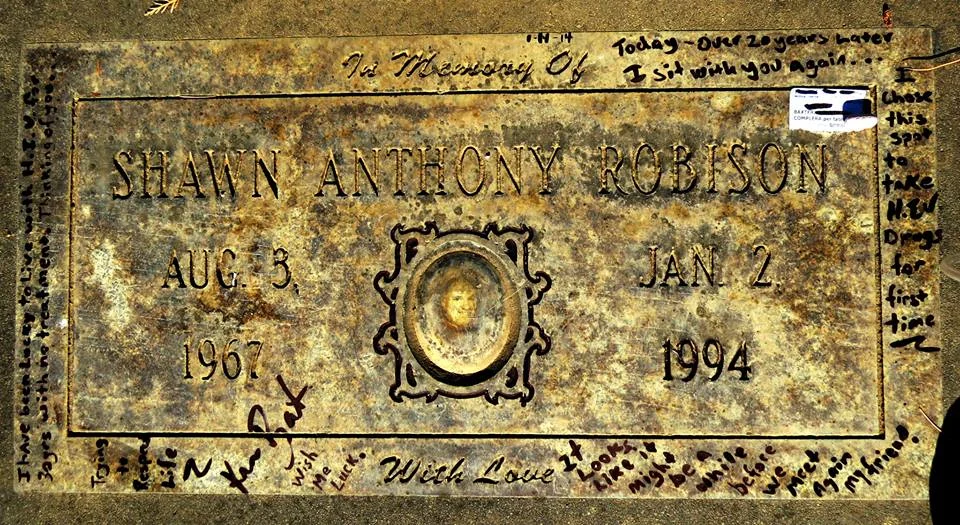 1-11-14
Today - over 20 years Later
I sit with you again...
In Memory Of
I
chose
this
spot
to
take
H.I.V
Drugs
for
first
time
COMPLERA
SHAWN ANTHONY ROBISON
AUG. 3,
JAN. 2
1967
1994
With Love
I have been Lucky to Live with H.I.V. for
years with no treatment. Thinking of you...
Trying
to
Life
Wish
Me
Luck.
It
Looks
Like it
might
be a
while
before
we
Meet
Again
my friend.